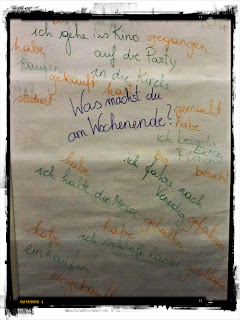 ich gehe ins Kino gegangen
habe auf die Party
kaufen gekauft habe in die Kirche
Was machst du gemacht
am Wochenende? habe
ich besuche
habe bin besucht
ich fahre nach
ich halte die Messe Venedig gefahren
habe habe gehalten
ich
einkaufen
eingekauft